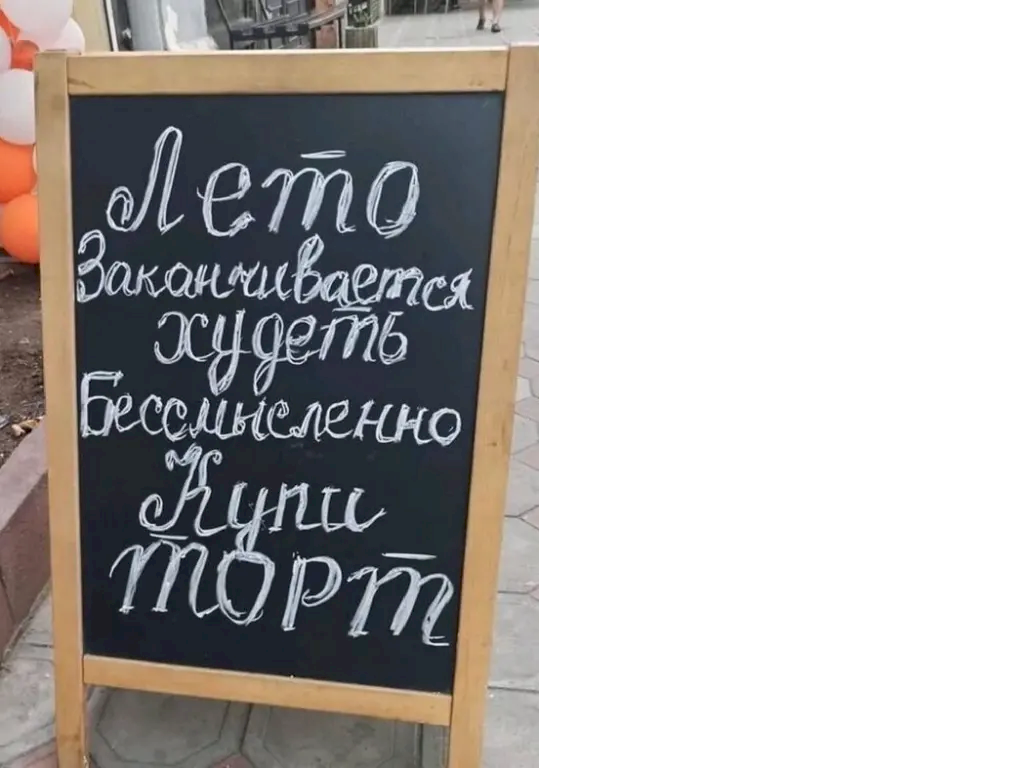 Лето
Заканчивается
худеть
Бессмысленно
Купи
торт